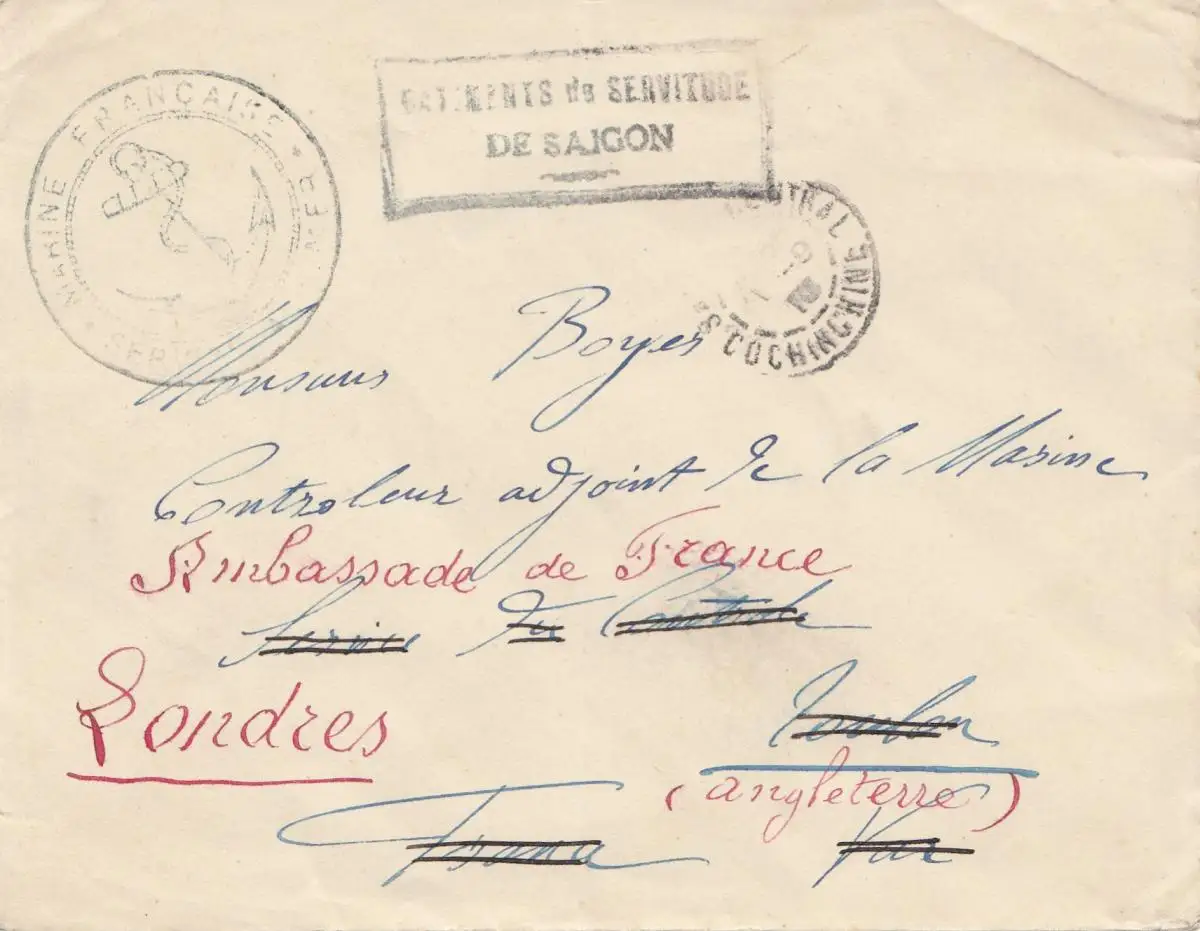 MARINE FRANÇAISE
BATIMENTS de SERVITUDE
DE SAIGON
CENTRAL
COCHINCHINE
Monsieur Boyer
Controleur adjoint de la Marine
Ambassade de France
Service du Controle
Londres
Toulon
(angleterre)
France Var